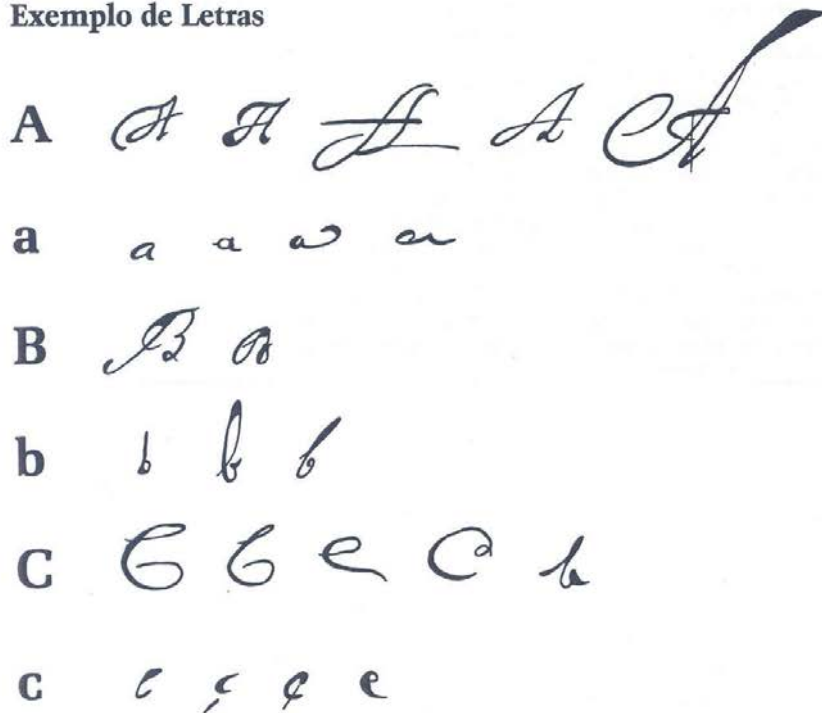 Exemplo de Letras
A A A A A A
a a a a a
B B B
b b b b
C C C C C C
c c ç c c